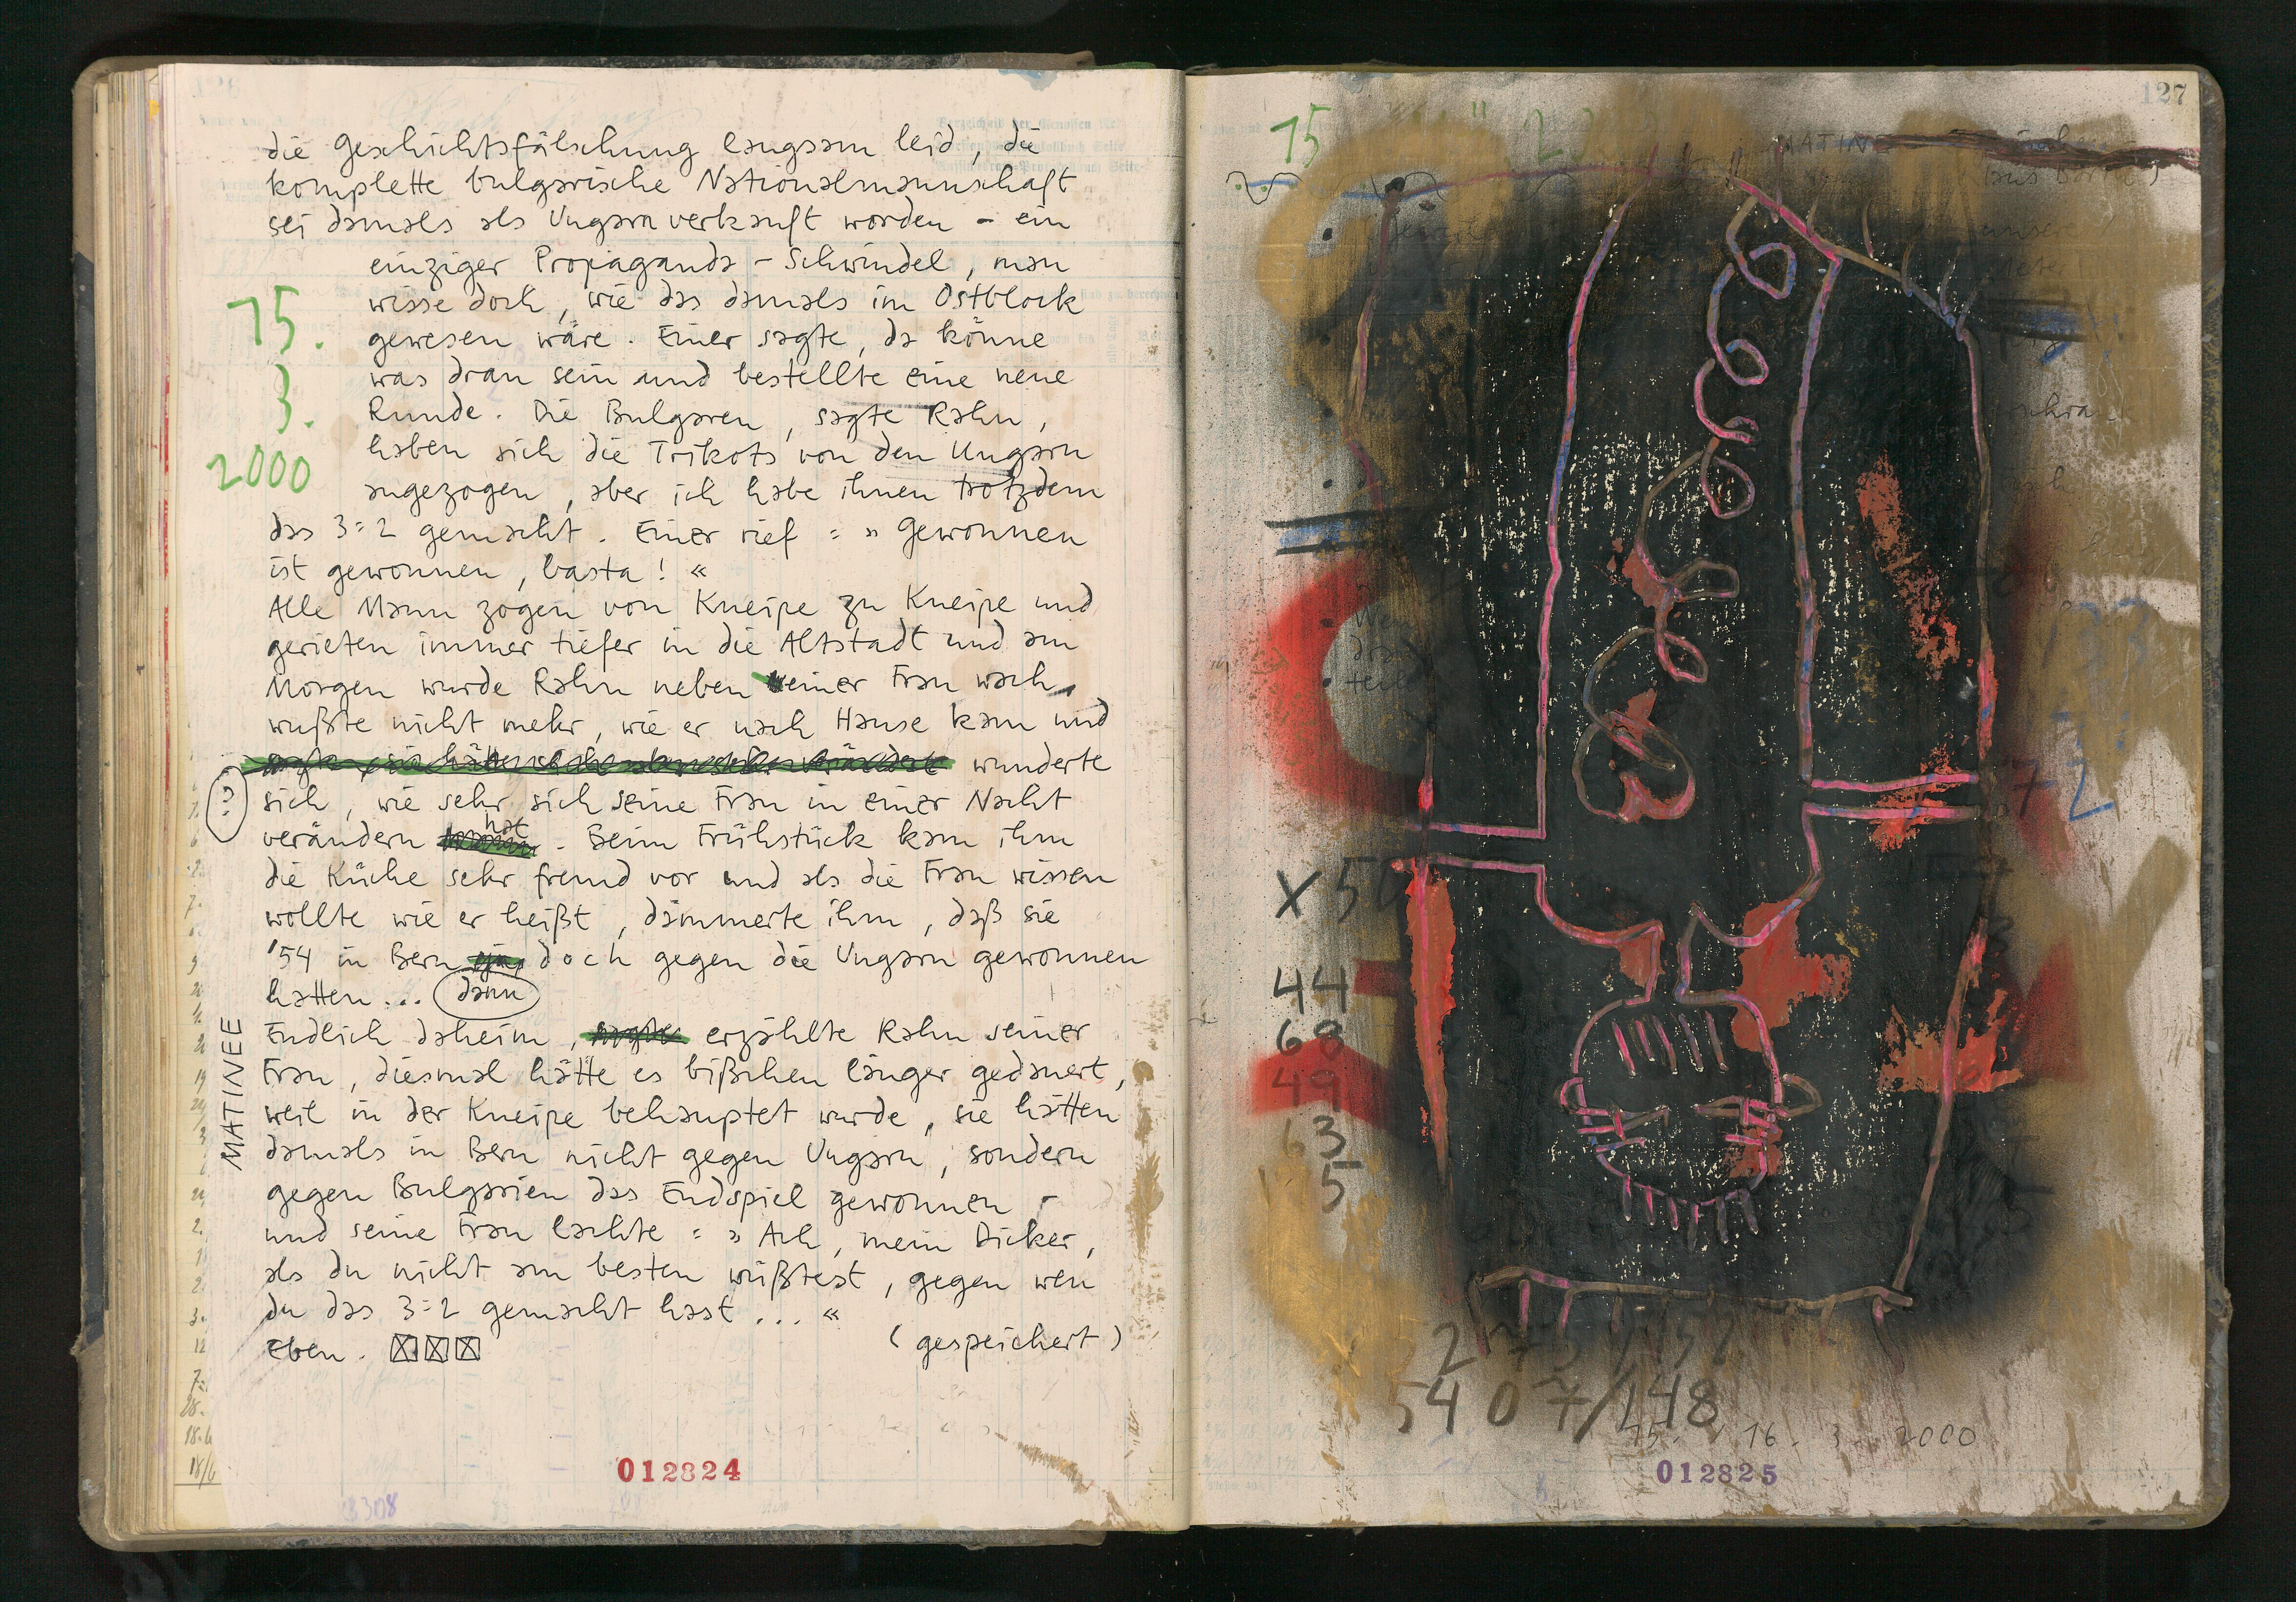 die Geschichtsfälschung langsam leid, die
komplette bulgarische Nationalmannschaft
sei damals als Ungarn verkauft worden - ein
einziger Propaganda-Schwindel, man
wisse doch, wie das damals im Ostblock
gewesen wäre. Einer sagte, da könne
was dran sein und bestellte eine neue
Runde. Die Bulgaren, sagte Rahn,
haben sich die Trikots von den Ungarn
angezogen, aber ich habe ihnen trotzdem
das 3:2 gemacht. Einer rief: » Gewonnen
ist gewonnen, basta! «
Alle Mann zogen von Kneipe zu Kneipe und
gerieten immer tiefer in die Altstadt und am
Morgen wurde Rahn neben einer Frau wach,
wußte nicht mehr, wie er nach Hause kam und
wunderte
sich, wie sehr sich seine Frau in einer Nacht
verändern hat. Beim Frühstück kam ihm
die Küche sehr fremd vor und als die Frau wissen
wollte wie er heißt, dämmerte ihm, daß sie
'54 in Bern doch gegen die Ungarn gewonnen
hatten... dann
Endlich daheim, erzählte Rahn seiner
Frau, diesmal hätte es bißchen länger gedauert,
weil in der Kneipe behauptet wurde, sie hätten
damals in Bern nicht gegen Ungarn, sondern
gegen Bulgarien das Endspiel gewonnen -
und seine Frau lachte: » Ach, mein Dicker,
als du nicht am besten wüßtest, gegen wen
du das 3:2 gemacht hast ... «
Eben.
(gespeichert)
15.
3.
2000
MATINEE
012824
127
15
MATINE
X 50
44
68
49
63
5
72
5407/148
15. / 16. 3. 2000
012825